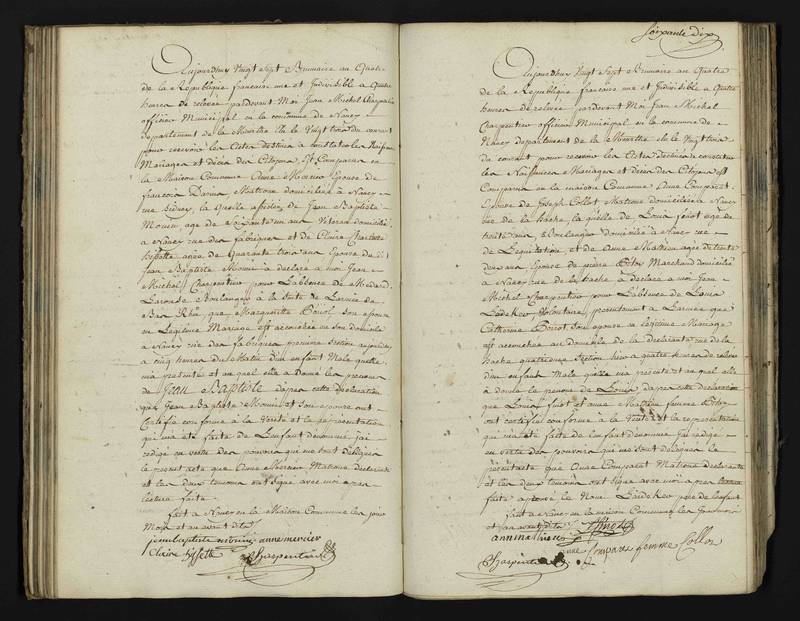 Aujourdhuy Vingt Sept Brumaire au Quatre
de la République francoise une et Indivisible a Quatre
heures de relevée pardevant Moi Jean Michel Charpentier
officier Municipal en la commune de Nancy
departement de la Meurthe Elu le Vingt trois du courant
pour recevoir les Actes destinés a constater les Naissances
Mariages et décès des Citoyens Est Comparue en
la Maison Commune Anne Mercier Epouse de
francois Matrone domiciliée à Nancy
rue la Quelle assistée de Jean Baptiste
Mounier age de Soixante un ans Veteran domicilié
a Nancy rue des fabriques et de Claire Charlotte
agée de Quarante trois ans Epouse du dit
Jean Baptiste Monnier a déclaré a moi Jean
Michel Charpentier pour l'absence de Medard
Larousse Boulanger à la suite de l'armée du
Bas Rhin que Marguerite son epouse
en Legitime Mariage est accouchée en son domicile
a Nancy rue des fabriques premiere Section aujourdhuy
a cinq heures du Matin d'un enfant Male quelle
ma présenté et au quel elle a donné les prenoms
de Jean Baptiste dapres cette déclaration
que Jean Baptiste Mounier et son epouse ont
Certifié conforme à la Verité et la représentation
qui m'a été faite de l'enfant denommé jai
rédigé en vertu des pouvoirs qui me sont délégués
le présent acte que Anne Mercier Matrone declarante
et les deux temoins ont signé avec moi apres
lecture faite
fait a Nancy en la Maison Commune les jour
Mois et an avant dits
jean baptiste anne mercier
Claire
Charpentier
Soixante dix
Aujourdhuy Vingt Sept Brumaire au Quatre
de la République francoise une et Indivisible a Quatre
heures de relevée pardevant moi Jean Michel
Charpentier officier Municipal en la commune de
Nancy departement de la Meurthe elu le Vingt trois
du courant pour recevoir les Actes destinés a constater
les Naissances Mariages et décès des Citoyens est
Comparue en la maison commune Anne Comparet
Epouse de Joseph Collot Matrone domiciliée a Nancy
rue de la hache, la quelle de Louis age de
trente ans Boulanger domicilié à Nancy rue
de L'equitation et de Anne Mathieu agée de trente
deux ans Epouse de pierre Marchand domicilié
a Nancy rue de la hache à déclaré a moi Jean
Michel Charpentier pour l'absence de Louis
Volontaire, presentement a L'armée que
Catherine son epouse en legitime Mariage
est accouchée au domicile de la déclarante rue de la
hache quatrieme Section hier a quatre heures de relevée
d'un enfant Male quelle ma présenté et au quel elle
à donné le prenom de Louis dapres cette declaration
que Louis et anne Mathieu femme
ont certifié conforme à la Verité et la representation
qui m'a été faite de l'enfant denommé jai rédigé
en vertu des pouvoirs qui me sont délégués le
présent acte que Anne Comparet Matrone declarante
et les deux temoins ont signé avec moi apres lecture
faite aprouvé le Nom pere de l'enfant
fait a Nancy en la maison Commune les jour mois
et an avant dits
ann mathieu
anne Comparet femme Collot
Charpentier